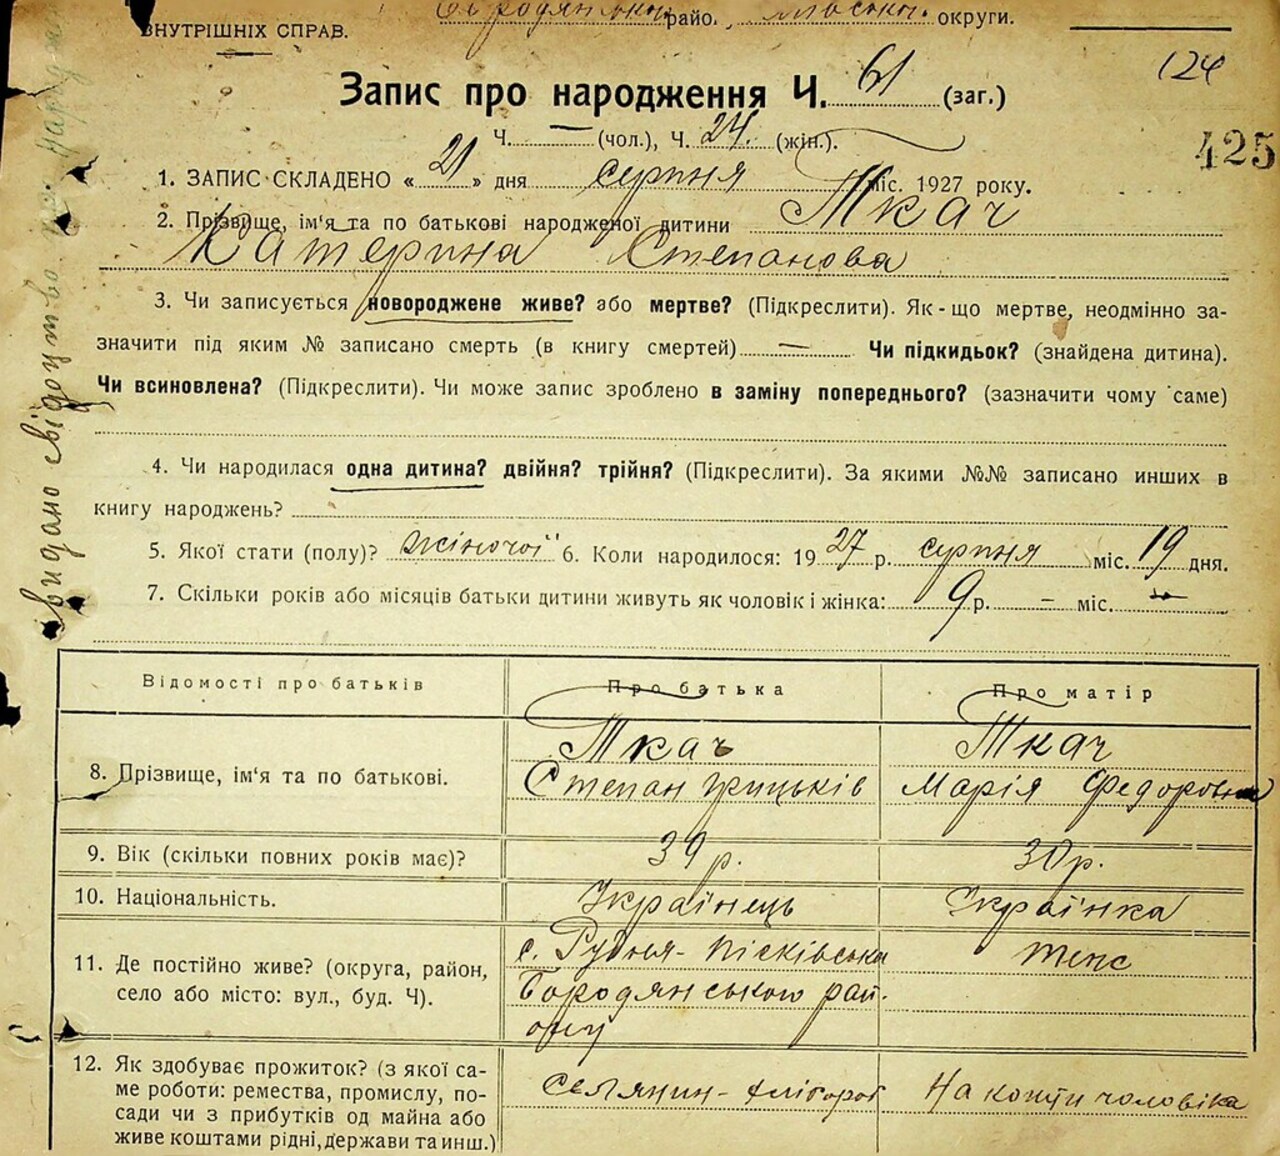 Бородянськ. райо. округи.
ВНУТРІШНІХ СПРАВ.
124
Запис про народження Ч. 61 (заг.)
Ч. — (чол.), Ч. 24. (жін.).
425
1. ЗАПИС СКЛАДЕНО « 21 » дня серпня міс. 1927 року.
2. Прізвище, ім'я та по батькові народженої дитини Ткач
Катерина Степанова
3. Чи записується новороджене живе? або мертве? (Підкреслити). Як-що мертве, неодмінно за-
значити під яким № записано смерть (в книгу смертей) — Чи підкидьок? (знайдена дитина).
Чи всиновлена? (Підкреслити). Чи може запис зроблено в заміну попереднього? (зазначити чому саме)
4. Чи народилася одна дитина? двійня? трійня? (Підкреслити). За якими №№ записано инших в
книгу народжень?
5. Якої стати (полу)? жіночої 6. Коли народилося: 1927 р. серпня міс. 19 дня.
7. Скільки років або місяців батьки дитини живуть як чоловік і жінка: 9 р. – міс. —
Відомості про батьків Про батька Про матір
8. Прізвище, ім'я та по батькові.
Ткач
Степан Грицьків
Ткач
Марія Федоровна
9. Вік (скільки повних років має)? 39 р. 30 р.
10. Національність. Українець Українка
11. Де постійно живе? (округа, район,
село або місто: вул., буд. Ч).
с. Рудня-Пісківська
Бородянського рай-
ону
теж
12. Як здобуває прожиток? (з якої са-
ме роботи: ремества, промислу, по-
сади чи з прибутків од майна або
живе коштами рідні, держави та инш.)
Селянин-хлібороб
На кошти чоловіка
Видано свідоцтво про народж